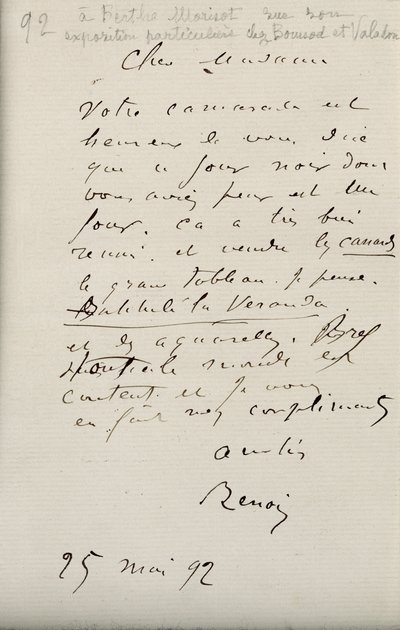 92 à Berthe Morisot sur son
exposition particulière chez Boussod et Valadon
Cher Madame
Votre camarade est
heureux de vous dire
que ce jour noir dont
vous aviez peur est un
jour. ça a très bien
réussi. et vendre les canards
le grand tableau. je pense.
la Veranda
et des aquarelles. Bref
tout le monde est
content et je vous
en fais mes compliments
amitiés
Renoir
25 mai 92